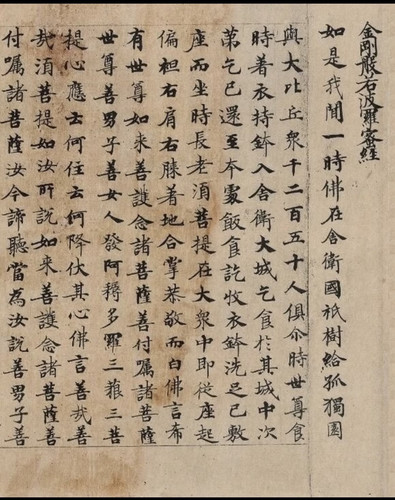 金剛般若波羅蜜經
如是我聞一時佛在舍衛國祇樹給孤獨園
與大比丘衆千二百五十人俱尒時世尊食
時着衣持鉢入舍衛大城乞食於其城中次
第乞已還至本處飯食訖收衣鉢洗足已敷
座而坐時長老須菩提在大衆中即從座起
偏袒右肩右膝著地合掌恭敬而白佛言希
有世尊如來善護念諸菩薩善付囑諸菩薩
世尊善男子善女人發阿耨多羅三藐三菩
提心應云何住云何降伏其心佛言善哉善
哉須菩提如汝所說如來善護念諸菩薩善
付囑諸菩薩汝今諦聽當為汝說善男子善